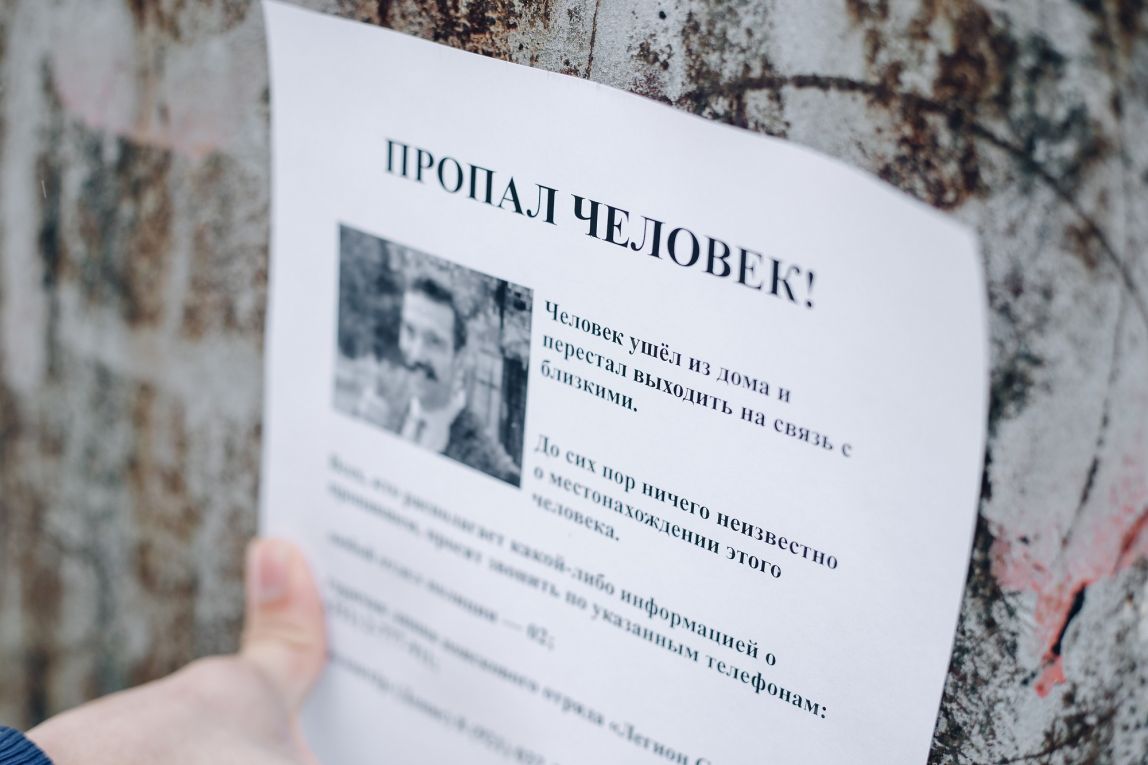 ПРОПАЛ ЧЕЛОВЕК!
Человек ушёл из дома и
перестал выходить на связь с
близкими.
До сих пор ничего неизвестно
о местонахождении этого
человека.
Всех, кто располагает какой-либо информацией о
просят звонить по указанным телефонам:
— 02;
отряда «Легион